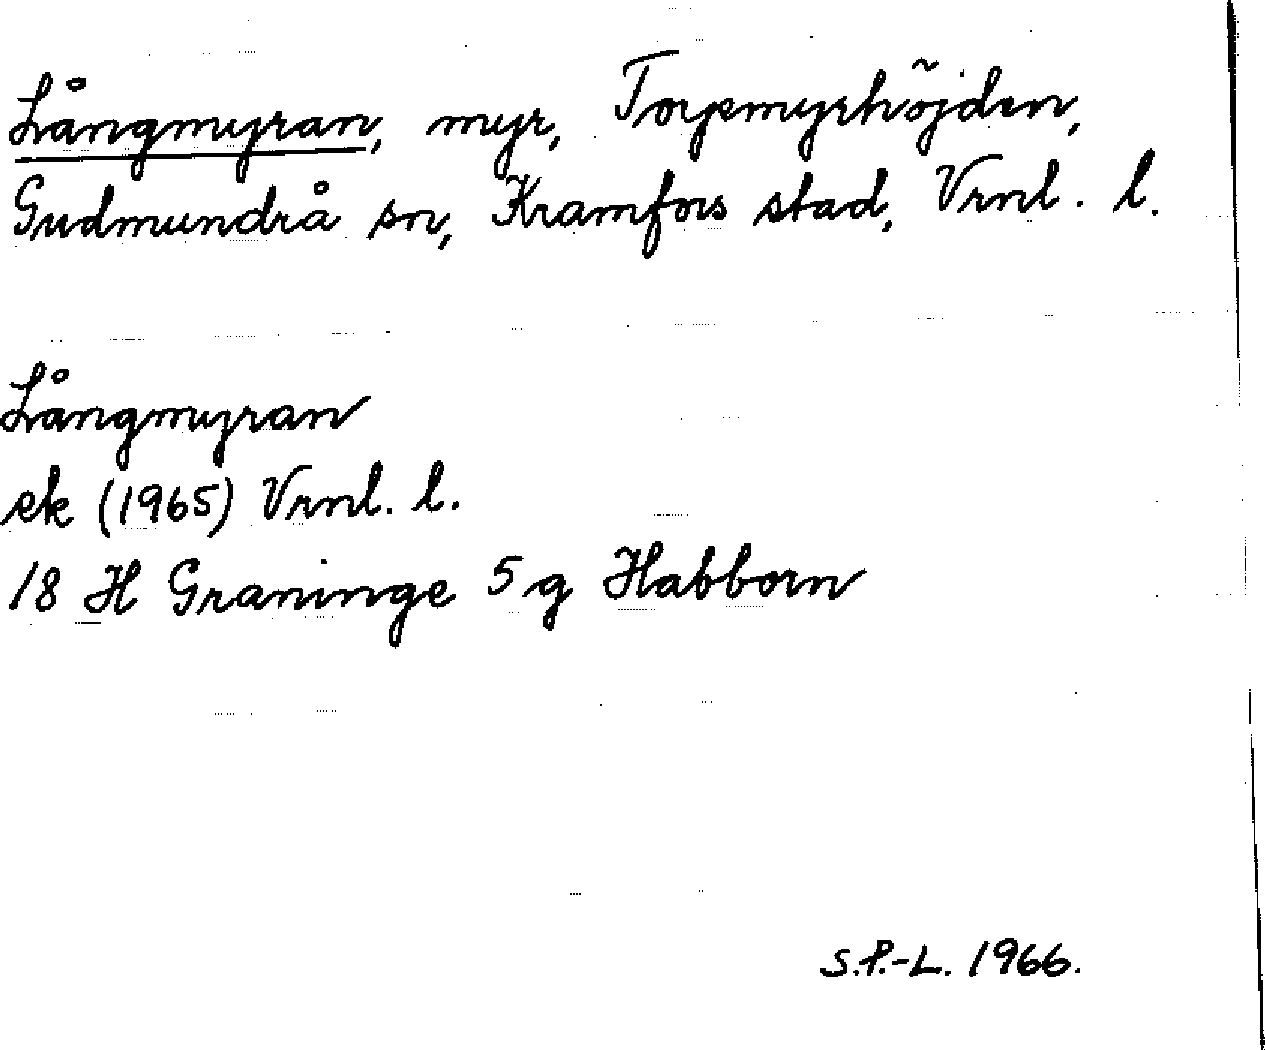 Långmyran, myr, Torpmyrhöjden,
Gudmundrå sn, Kramfors stad, Vrnl. l.
Långmyran
ek (1965) Vrnl. l.
18 H Graninge 5 g Habborn
S.P.-L. 1966.